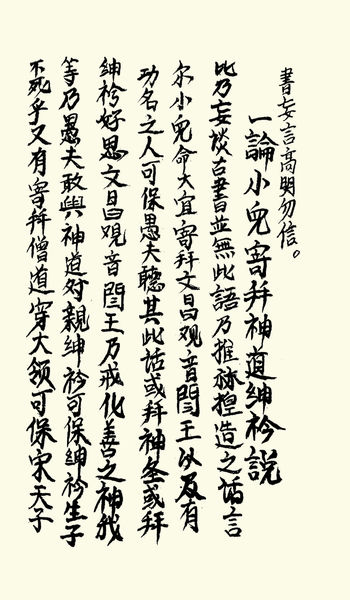 書妄言高明勿信。
一論小兒寄拜神道紳衿説
此乃妄談古書並無此語乃推祢捏造之話言
尔小兒命大宜寄拜文昌观音閆王以及有
功名之人可保愚夫聽其此話或拜神圣或拜
紳衿好思文昌观音閆王乃戒化善之神我
等乃愚夫敢與神道对親紳衿可保紳衿生子
不死乎又有寄拜僧道穿大领可保宋天子